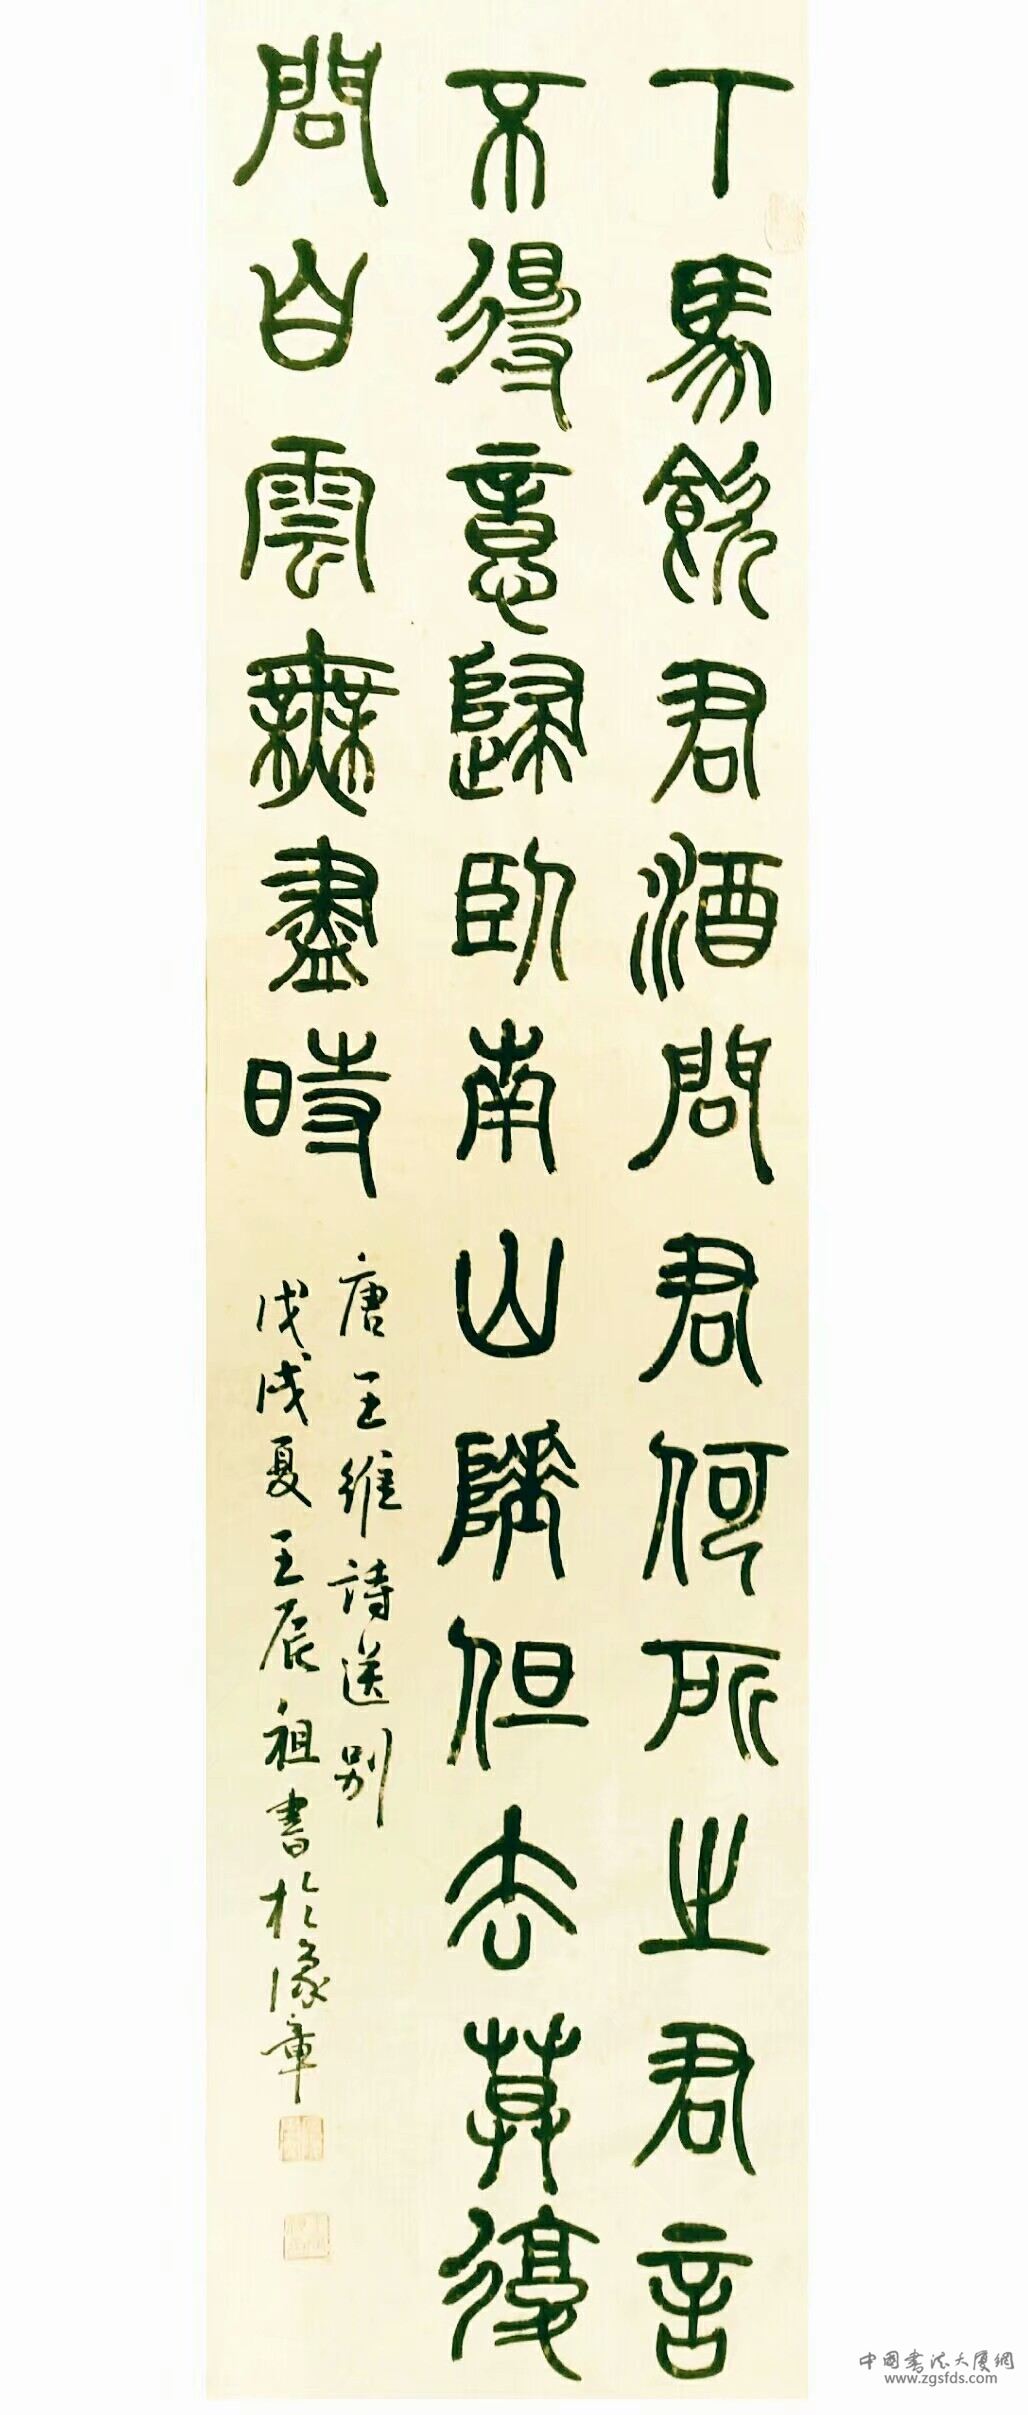 下馬飲君酒問君何所之君言
不得意歸臥南山陲但去莫復
問白雲無盡時
唐王維詩送別
戊戌夏王辰祖書於豫章
中國書法大廈網
www.zgsfds.com